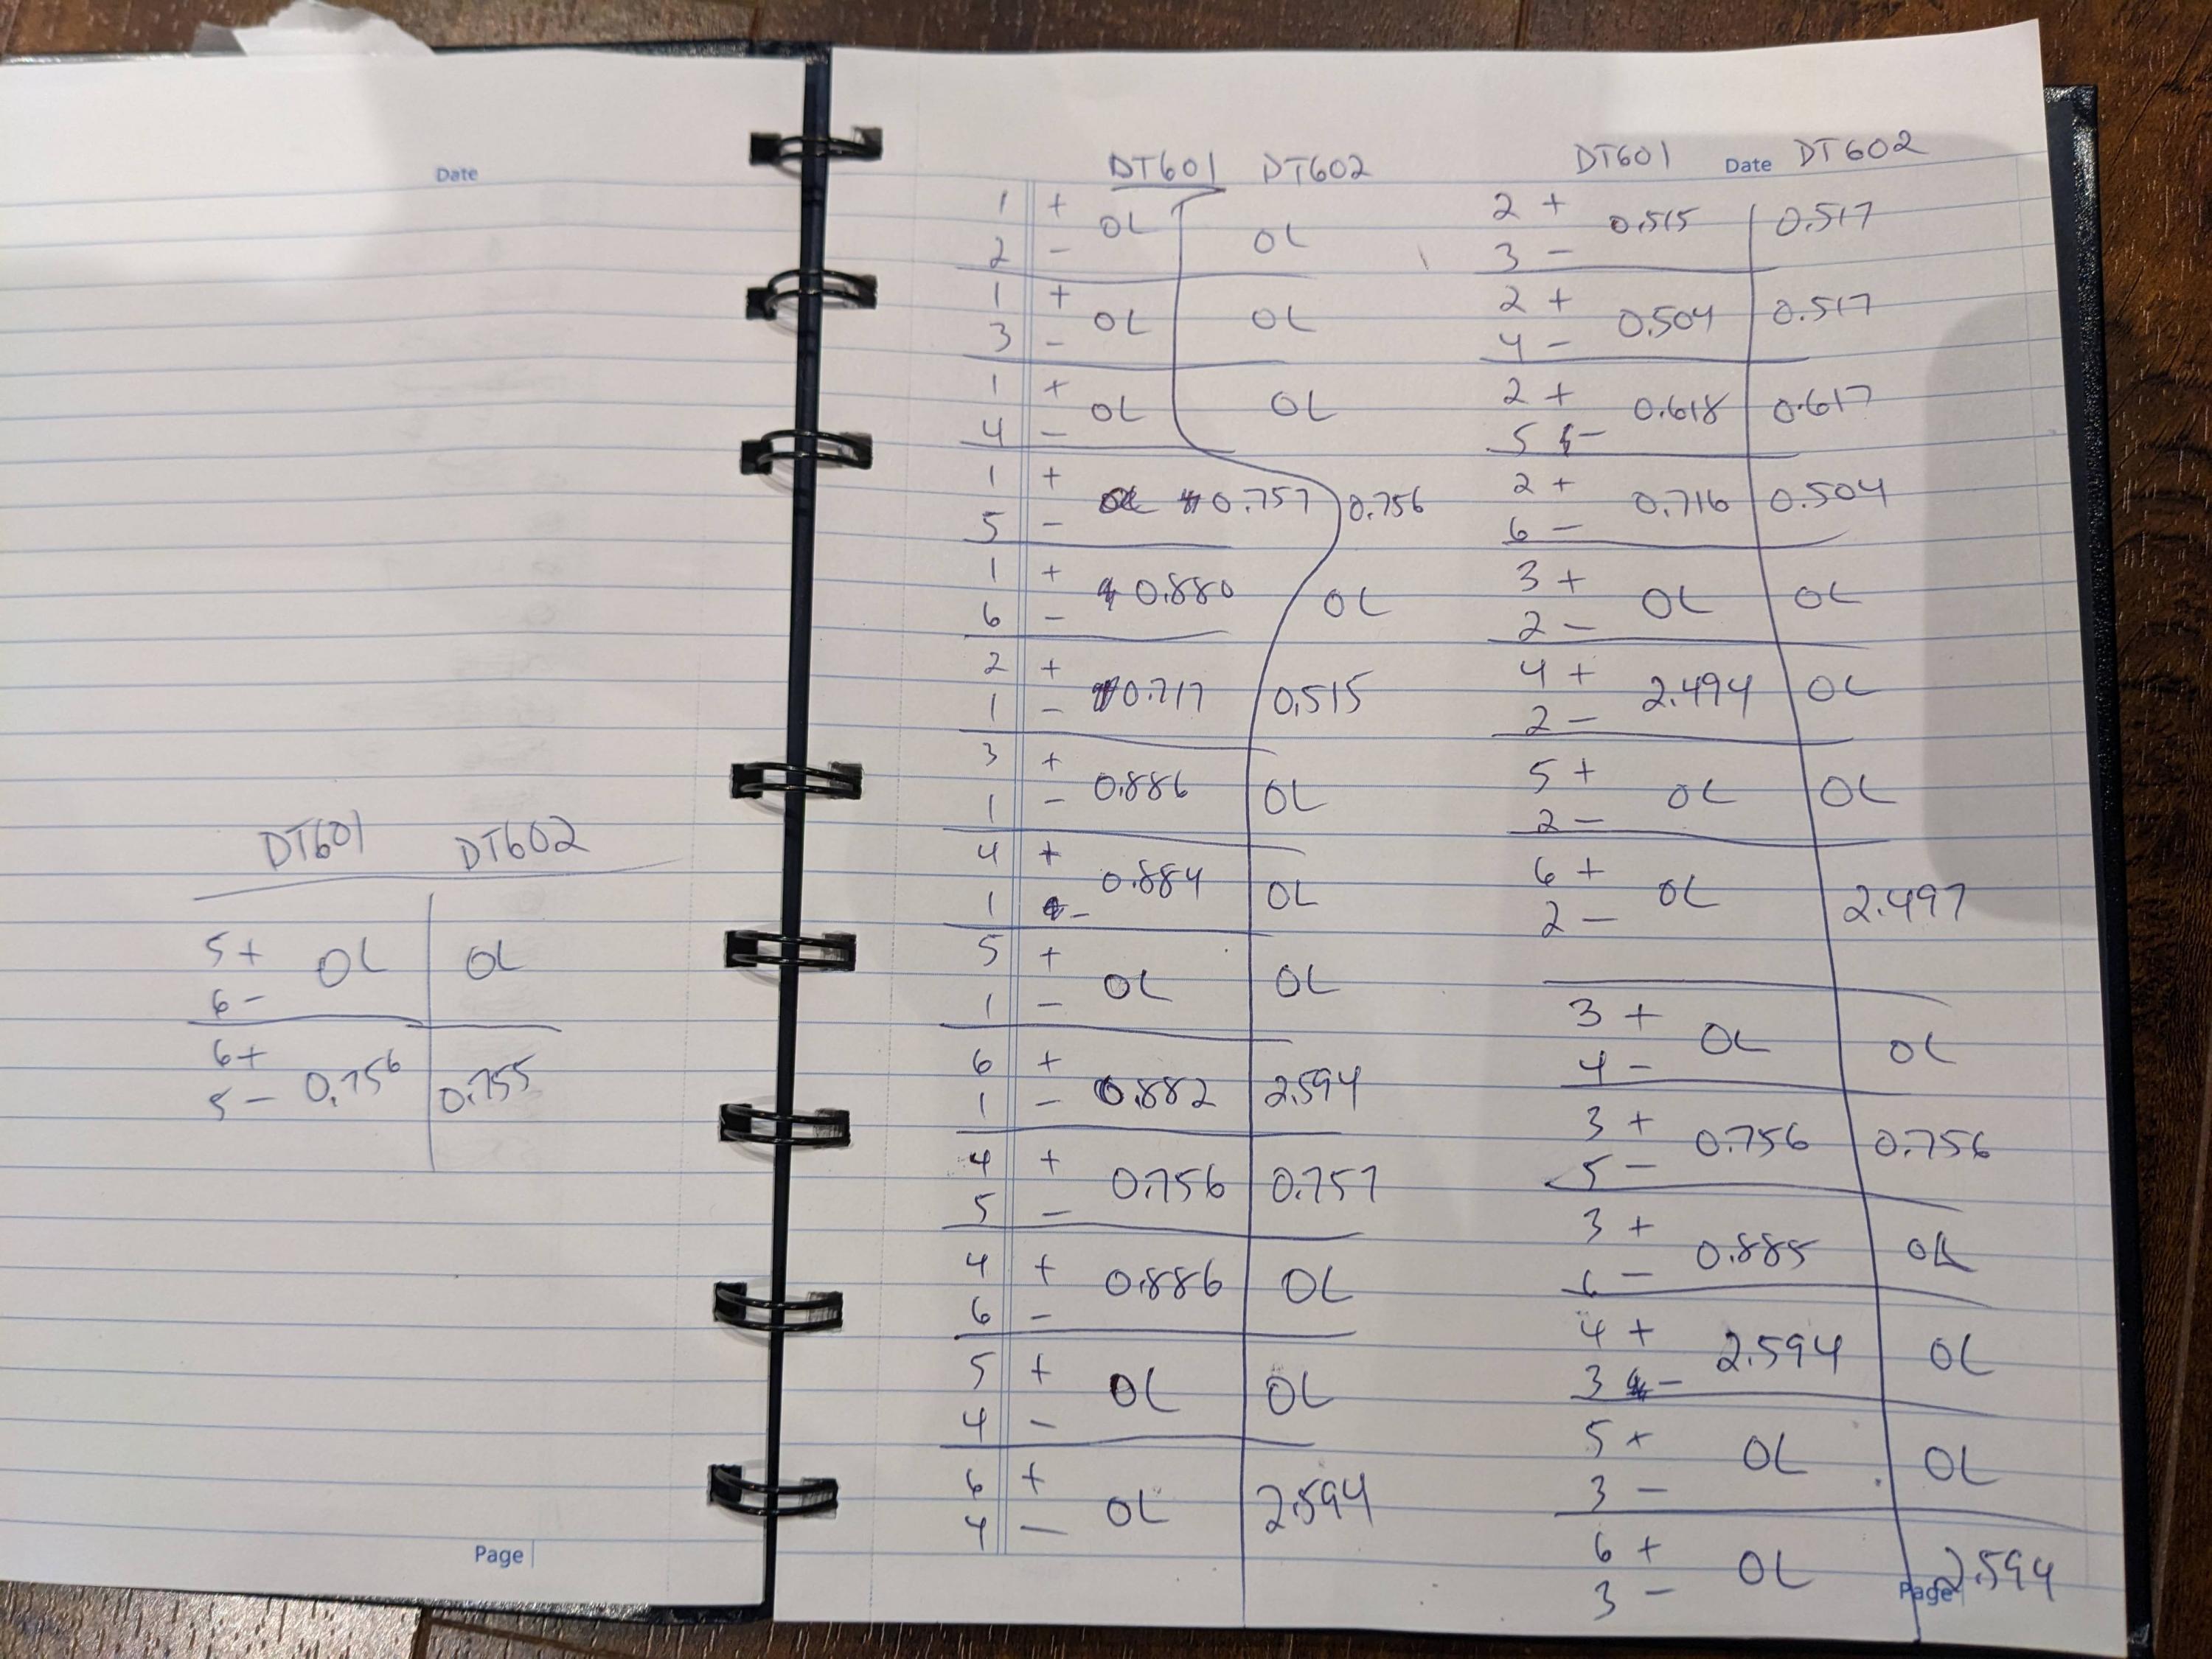 Date
DT601 DT602
5+ OL OL
6-
6+ 0.756 0.755
5-
Page
DT601 DT602
1 + OL OL
2 -
1 + OL OL
3 -
1 + OL OL
4 -
1 + 0.757 0.756
5 -
1 + 0.880 OL
6 -
2 + 0.717 0.515
1 -
3 + 0.886 OL
1 -
4 + 0.884 OL
1 -
5 + OL OL
1 -
6 + 0.882 2.594
1 -
4 + 0.756 0.757
5 -
4 + 0.886 OL
6 -
5 + OL OL
4 -
6 + OL 2.594
4 -
DT601 Date DT602
2 + 0.515 0.517
3 -
2 + 0.504 0.517
4 -
2 + 0.618 0.617
5 -
2 + 0.716 0.504
6 -
3 + OL OL
2 -
4 + 2.494 OL
2 -
5 + OL OL
2 -
6 + OL 2.497
2 -
3 + OL OL
4 -
3 + 0.756 0.756
5 -
3 + 0.885 OL
6 -
4 + 2.594 OL
3 -
5 + OL OL
3 -
6 + OL 2.594
3 -
Page